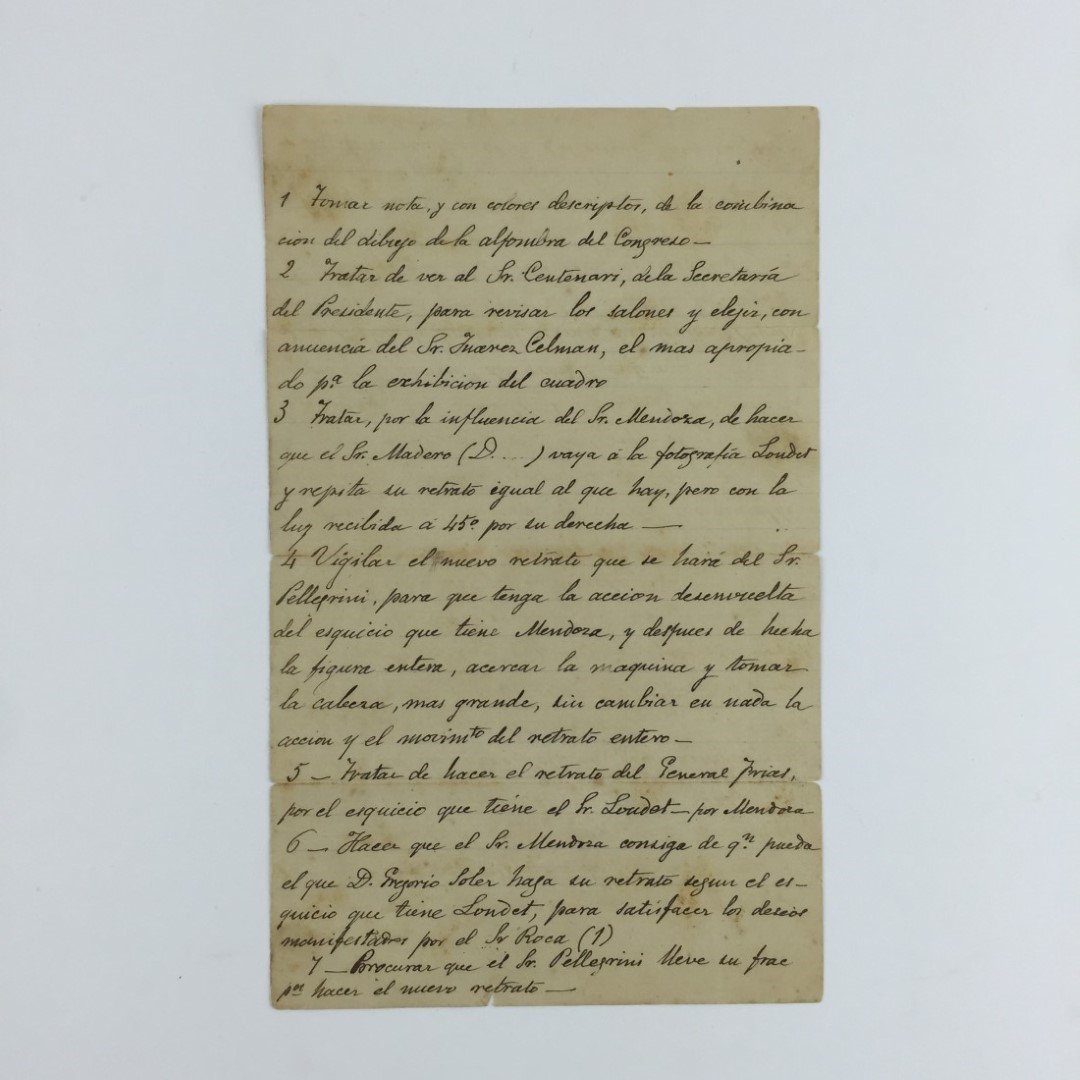 1 Tomar nota, y con colores descriptos, de la combina
cion del dibujo de la alfombra del Congreso—
2 Tratar de ver al Sr. Centenari, de la Secretaría
del Presidente, para revisar los salones y elejir, con
anuencia del Sr. Juarez Celman, el mas apropia–
do pª la exhibicion del cuadro
3 Tratar, por la influencia del Sr. Mendoza, de hacer
que el Sr. Madero (D. ...) vaya á la fotografía Loudet
y repita su retrato igual al que hay, pero con la
luz recibida á 45º por su derecha —
4 Vigilar el nuevo retrato que se hará del Sr.
Pellegrini, para que tenga la accion desenvuelta
del esquicio que tiene Mendoza, y despues de hecha
la figura entera, acercar la maquina y tomar
la cabeza, mas grande, sin cambiar en nada la
accion y el movimto del retrato entero—
5 — Tratar de hacer el retrato del General Frias,
por el esquicio que tiéne el Sr. Loudet — por Mendoza
6 — Hacer que el Sr. Mendoza consiga de qn pueda
el que D. Gregorio Soler haga su retrato segun el es–
quicio que tiene Loudet, para satisfacer los deseos
manifestados por el Sr Roca (1)
7 — Procurar que el Sr. Pellegrini lleve su frac
pª hacer el nuevo retrato —